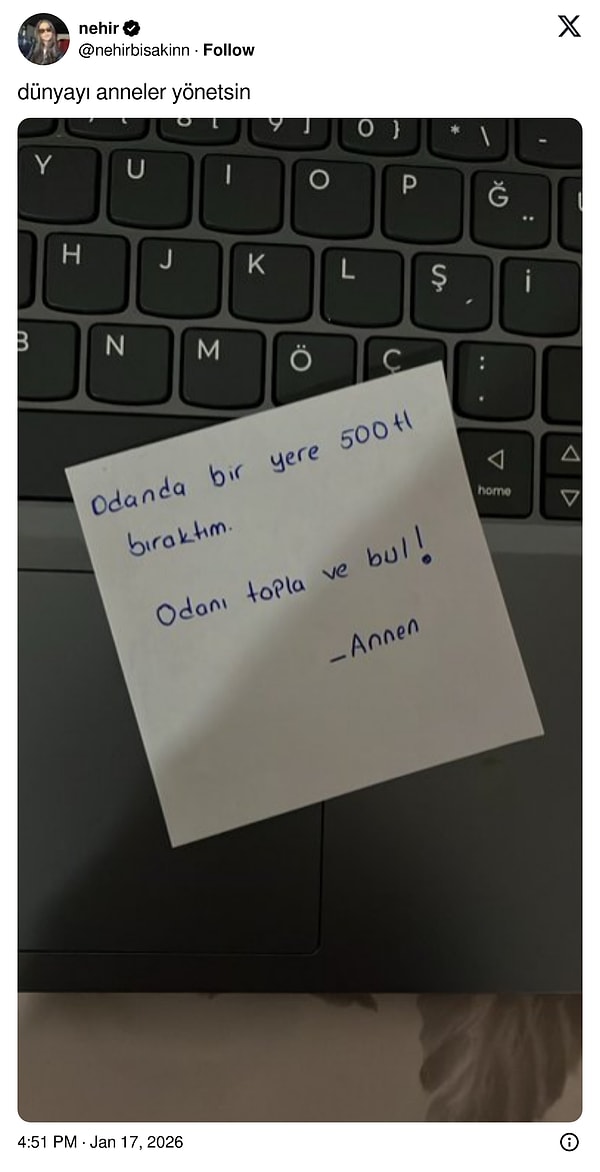 nehir
@nehirbisakinn · Follow
dünyayı anneler yönetsin
9 ]
O }
* \
-
Y U I O P Ğ ¨
H J K L Ş ´ İ
B N M Ö Ç : .
home
Odanda bir yere 500 tl
bıraktım.
Odanı topla ve bul!
_Annen
4:51 PM · Jan 17, 2026